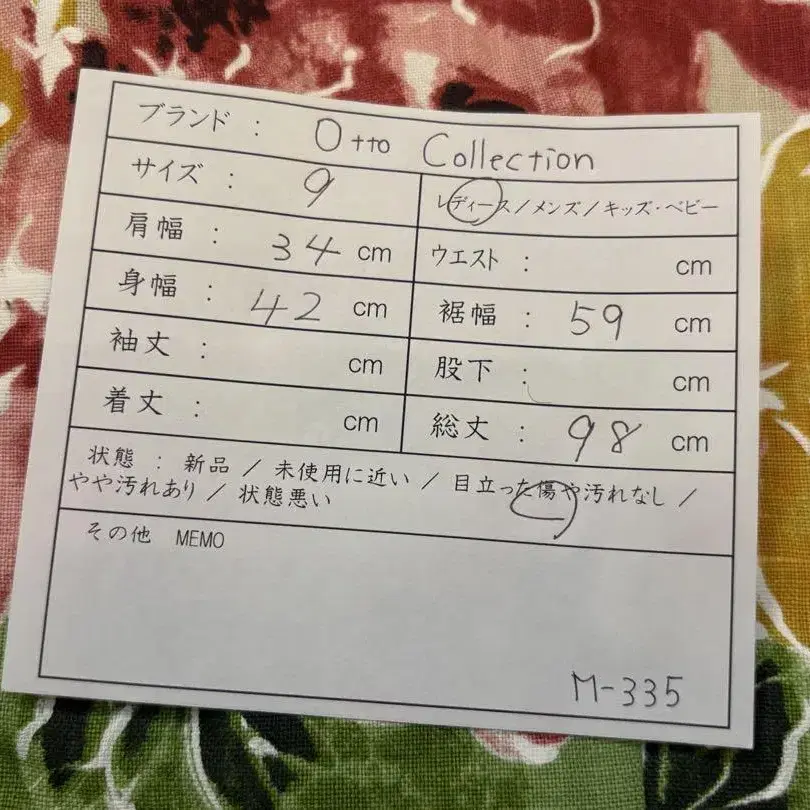 ブランド : Otto Collection
サイズ : 9
レディース/メンズ/キッズ・ベビー
肩幅 : 34 cm
ウエスト : cm
身幅 : 42 cm
裾幅 : 59 cm
袖丈 : cm
股下 : cm
着丈 : cm
総丈 : 98 cm
状態 : 新品 / 未使用に近い / 目立った傷や汚れなし /
やや汚れあり / 状態悪い
その他 MEMO
M-335